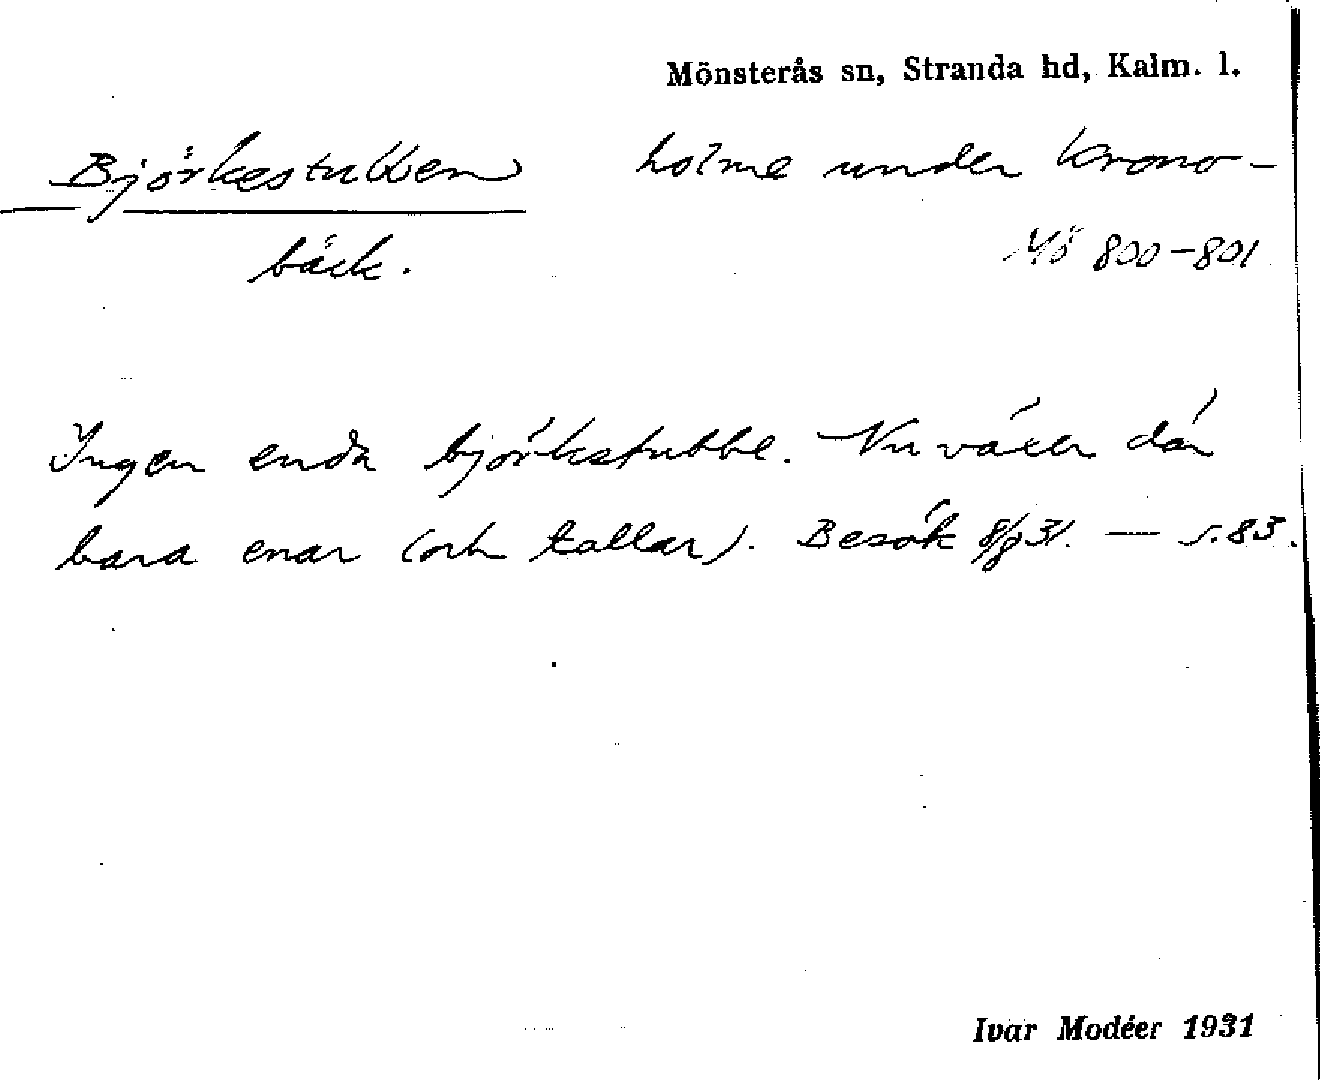 Mönsterås sn, Stranda hd, Kalm. l.
Björkestubben holme under Krono-
bäck. Mö 800-801
Ingen enda björkstubbe. Nu växer där
bara enar (och tallar). Besök 8/8 31. — s. 83.
Ivar Modéer 1931